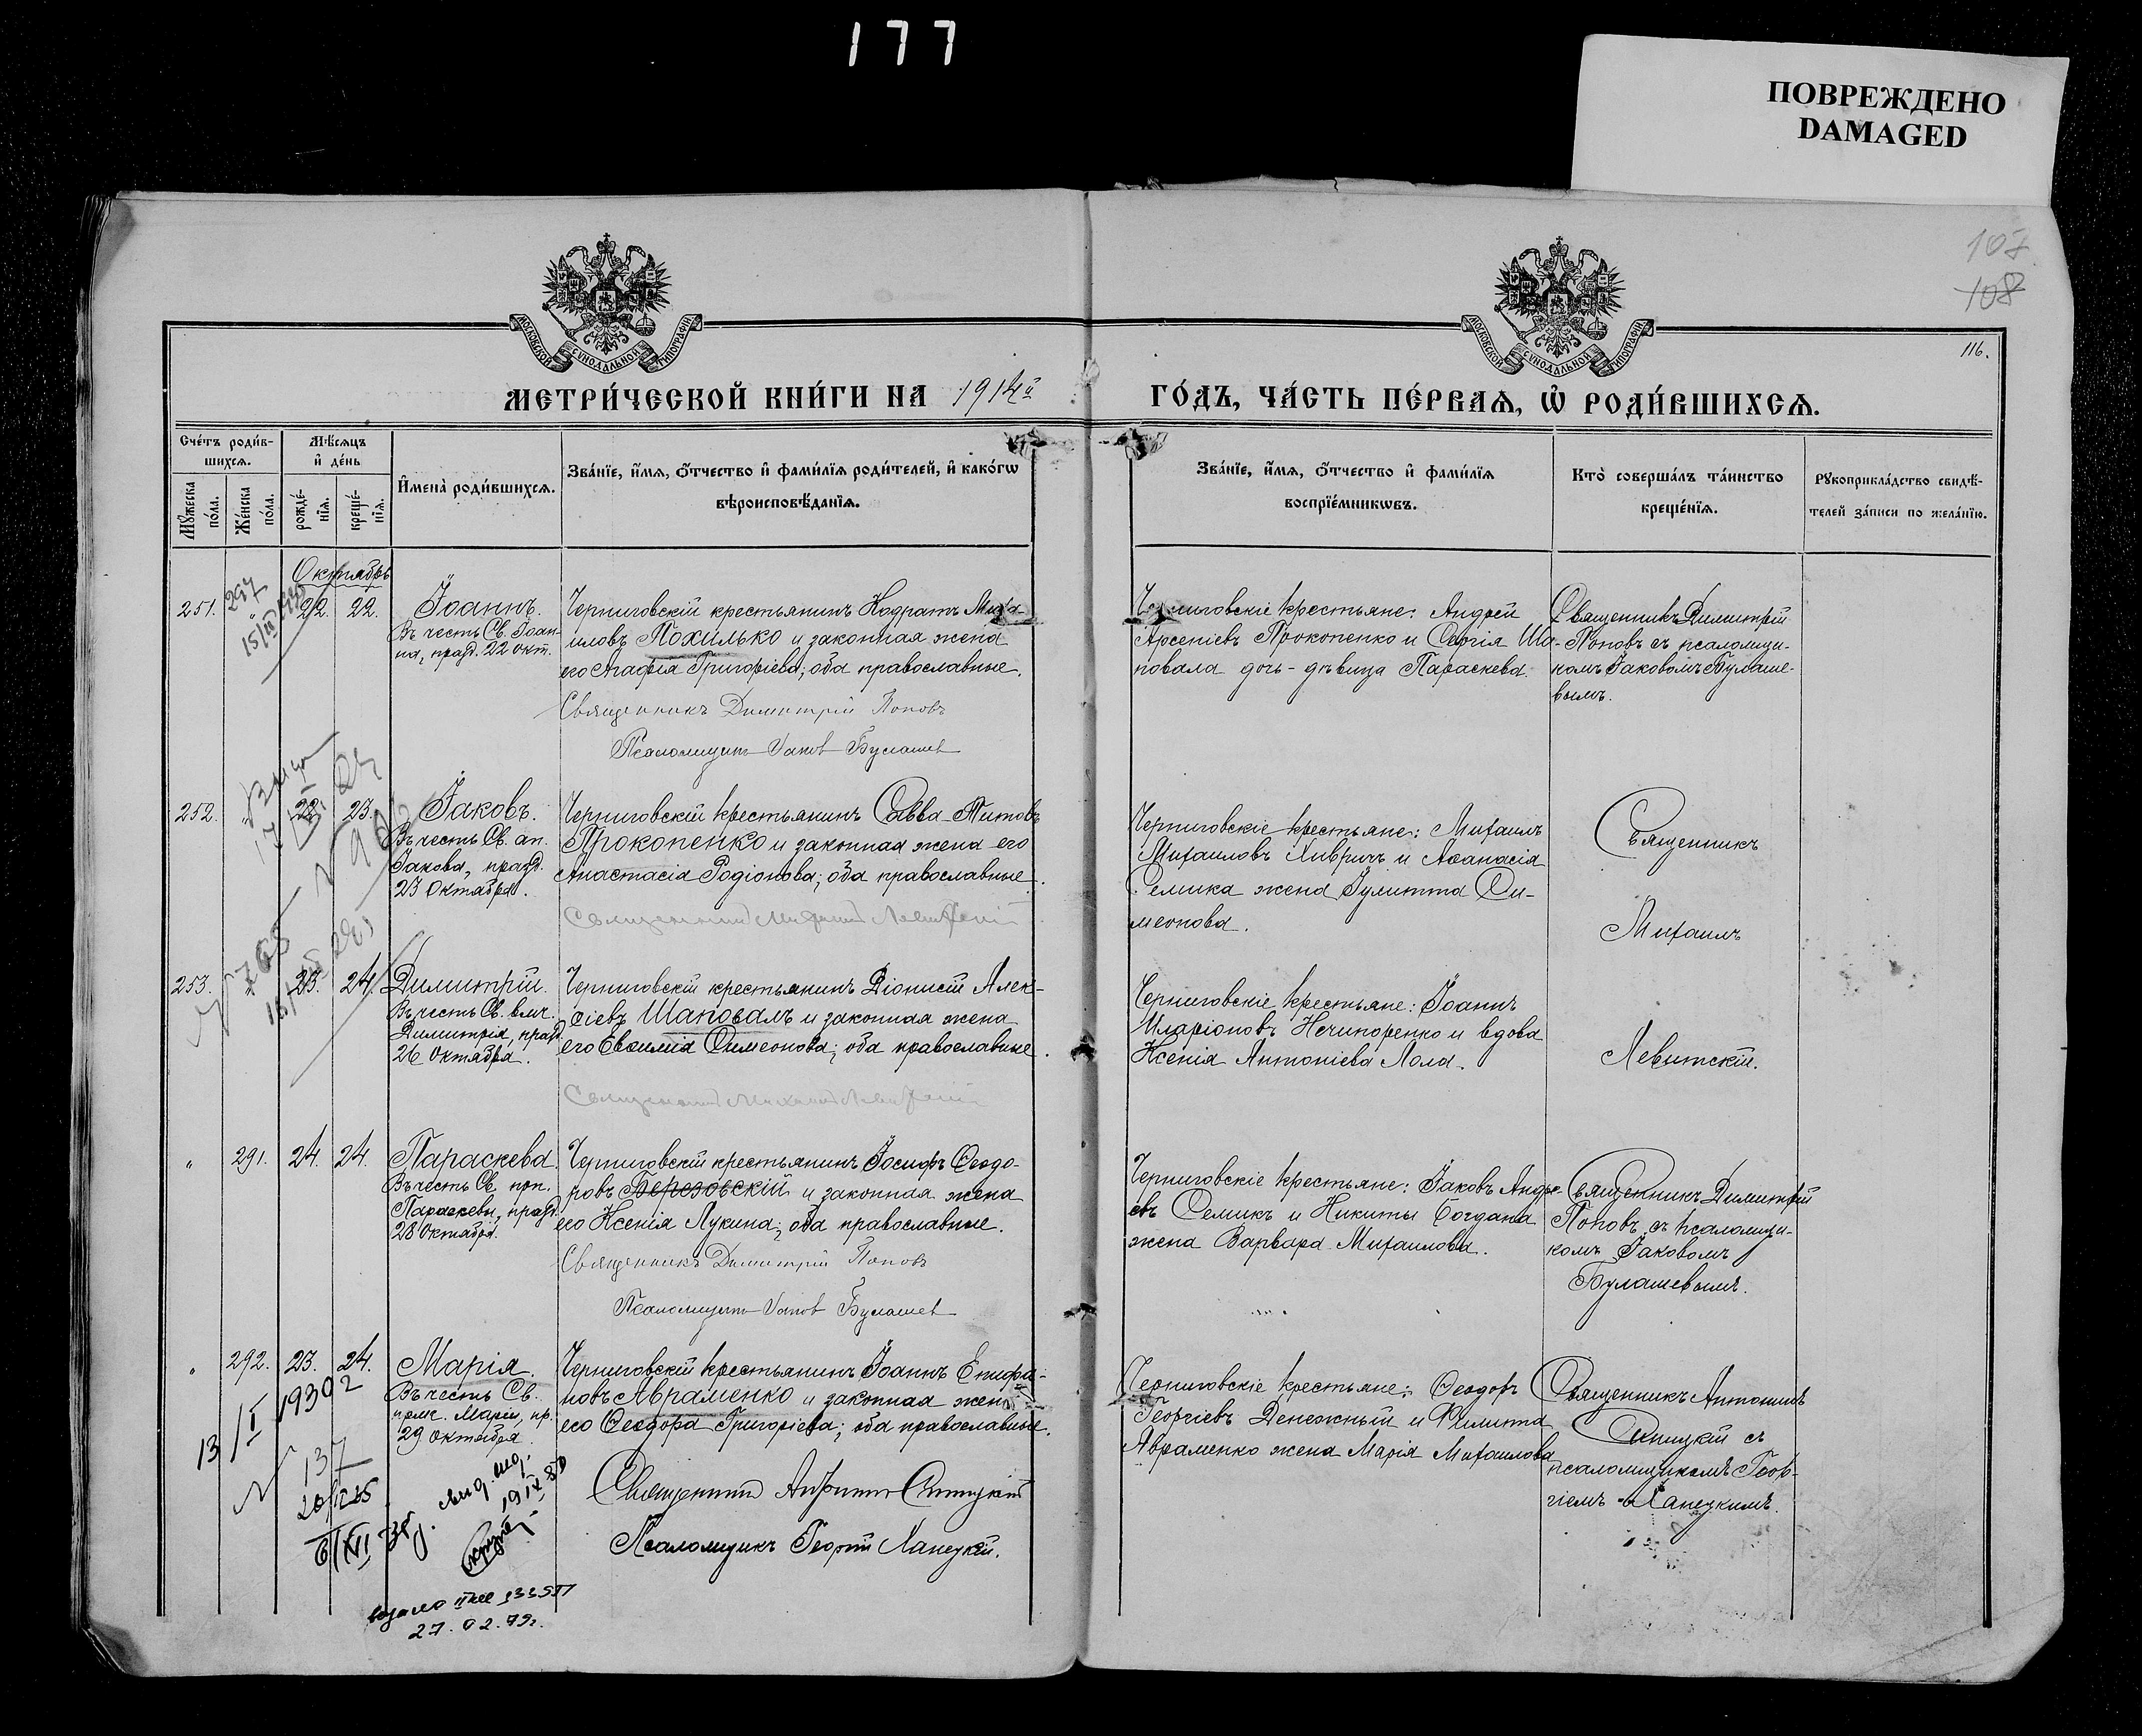 177
ПОВРЕЖДЕНО
DAMAGED
107
108
116.
МОСКОВСКОЙ СѴНОДАЛЬНОЙ ТИПОГРАФІИ
МОСКОВСКОЙ СѴНОДАЛЬНОЙ ТИПОГРАФІИ
МЕТРИ́ЧЕСКОЙ КНИ́ГИ НА 1914й
ГО́ДЪ, ЧА́СТЬ ПЕ́РВАѦ, Ѡ҆ РОДИ́ВШИХСѦ.
Сче́тъ роди́в-
шихсѧ.
Мꙋ́жеска по́ла.
Же́нска по́ла.
Мѣ́сѧцъ
и҆ де́нь
рожде́-
нїѧ.
креще́-
нїѧ.
И҆мена̀ роди́вшихсѧ.
Зва́нїе, и҆́мѧ, ѻ҆́тчество и҆ фами́лїѧ роди́телей, и҆ како́гѡ
вѣроисповѣ́данїѧ.
Зва́нїе, и҆́мѧ, ѻ҆́тчество и҆ фами́лїѧ
воспрїе́мникѡвъ.
Кто̀ соверша́лъ та́инство
креще́нїѧ.
Рꙋкоприкла́дство свидѣ́-
телей за́писи по жела́нїю.
Октябрь
251. 22. 22.
297
Іоаннъ.
Въ честь Св. Іоан-
на, празд. 22 окт.
Черниговскій крестьянинъ Кодратъ Миха-
иловъ Похилько и законная жена
его Агафія Григорієва; оба православные.
Священникъ Димитрій Поповъ
Псаломщикъ Іаковъ Булашевъ
Черниговскіе крестьяне: Андрей
Арсеніевъ Прокопенко и Сергія Ша-
повала дочь-дѣвица Параскева.
Священникъ Димитрій
Поповъ съ псаломщи-
комъ Іаковомъ Булаше-
вымъ.
252. 22. 23.
Іаковъ.
Въ честь Св. ап.
Іакова, празд.
23 Октября.
Черниговскій крестьянинъ Савва Титовъ
Прокопенко и законная жена его
Анастасія Родіонова; оба православные.
Священникъ Михаилъ Левитскій
Черниговскіе крестьяне: Михаилъ
Михаиловъ Хивричъ и Аѳанасія
Семика жена Іулитта Си-
меонова.
Священникъ
Михаилъ
Левитскій.
253. 23. 24.
Димитрій.
Въ честь Св. влмч.
Димитрія, празд.
26 Октября.
Черниговскій крестьянинъ Діонисій Алек-
сіевъ Шаповалъ и законная жена
его Евѳимія Симеонова; оба православные.
Священникъ Михаилъ Левитскій
Черниговскіе крестьяне: Іоаннъ
Иларіоновъ Нечипоренко и вдова
Ксенія Антоніева Лола.
" 291. 24. 24.
Параскева.
Въ честь Св. прп.
Параскевы, празд.
28 Октября.
Черниговскій крестьянинъ Іосифъ Ѳеодо-
ровъ Березовскій и законная жена
его Ксенія Лукина; оба православные.
Священникъ Димитрій Поповъ
Псаломщикъ Іаковъ Булашевъ
Черниговскіе крестьяне: Іаковъ Андре-
евъ Семикъ и Никиты Богдана
жена Варвара Михаилова.
Священникъ Димитрій
Поповъ съ псаломщи-
комъ Іаковомъ
Булашевымъ.
" 292. 23. 24.
Марія.
Въ честь Св.
прмк. Маріи, пр.
29 Октября.
Черниговскій крестьянинъ Іоаннъ Епифа-
новъ Авраменко и законная жена
его Ѳеодора Григоріева; оба православные.
Священникъ Антоній Синицкій
Псаломщикъ Георгій Ханецкій.
Черниговскіе крестьяне: Ѳеодоръ
Георгіевъ Денежный и Филиппа
Авраменко жена Марія Михаилова
Священникъ Антоній
Синицкій съ
псаломщикомъ Геор-
гіемъ Ханецкимъ.
13/I 1939 г
N 137
27.02.79г.